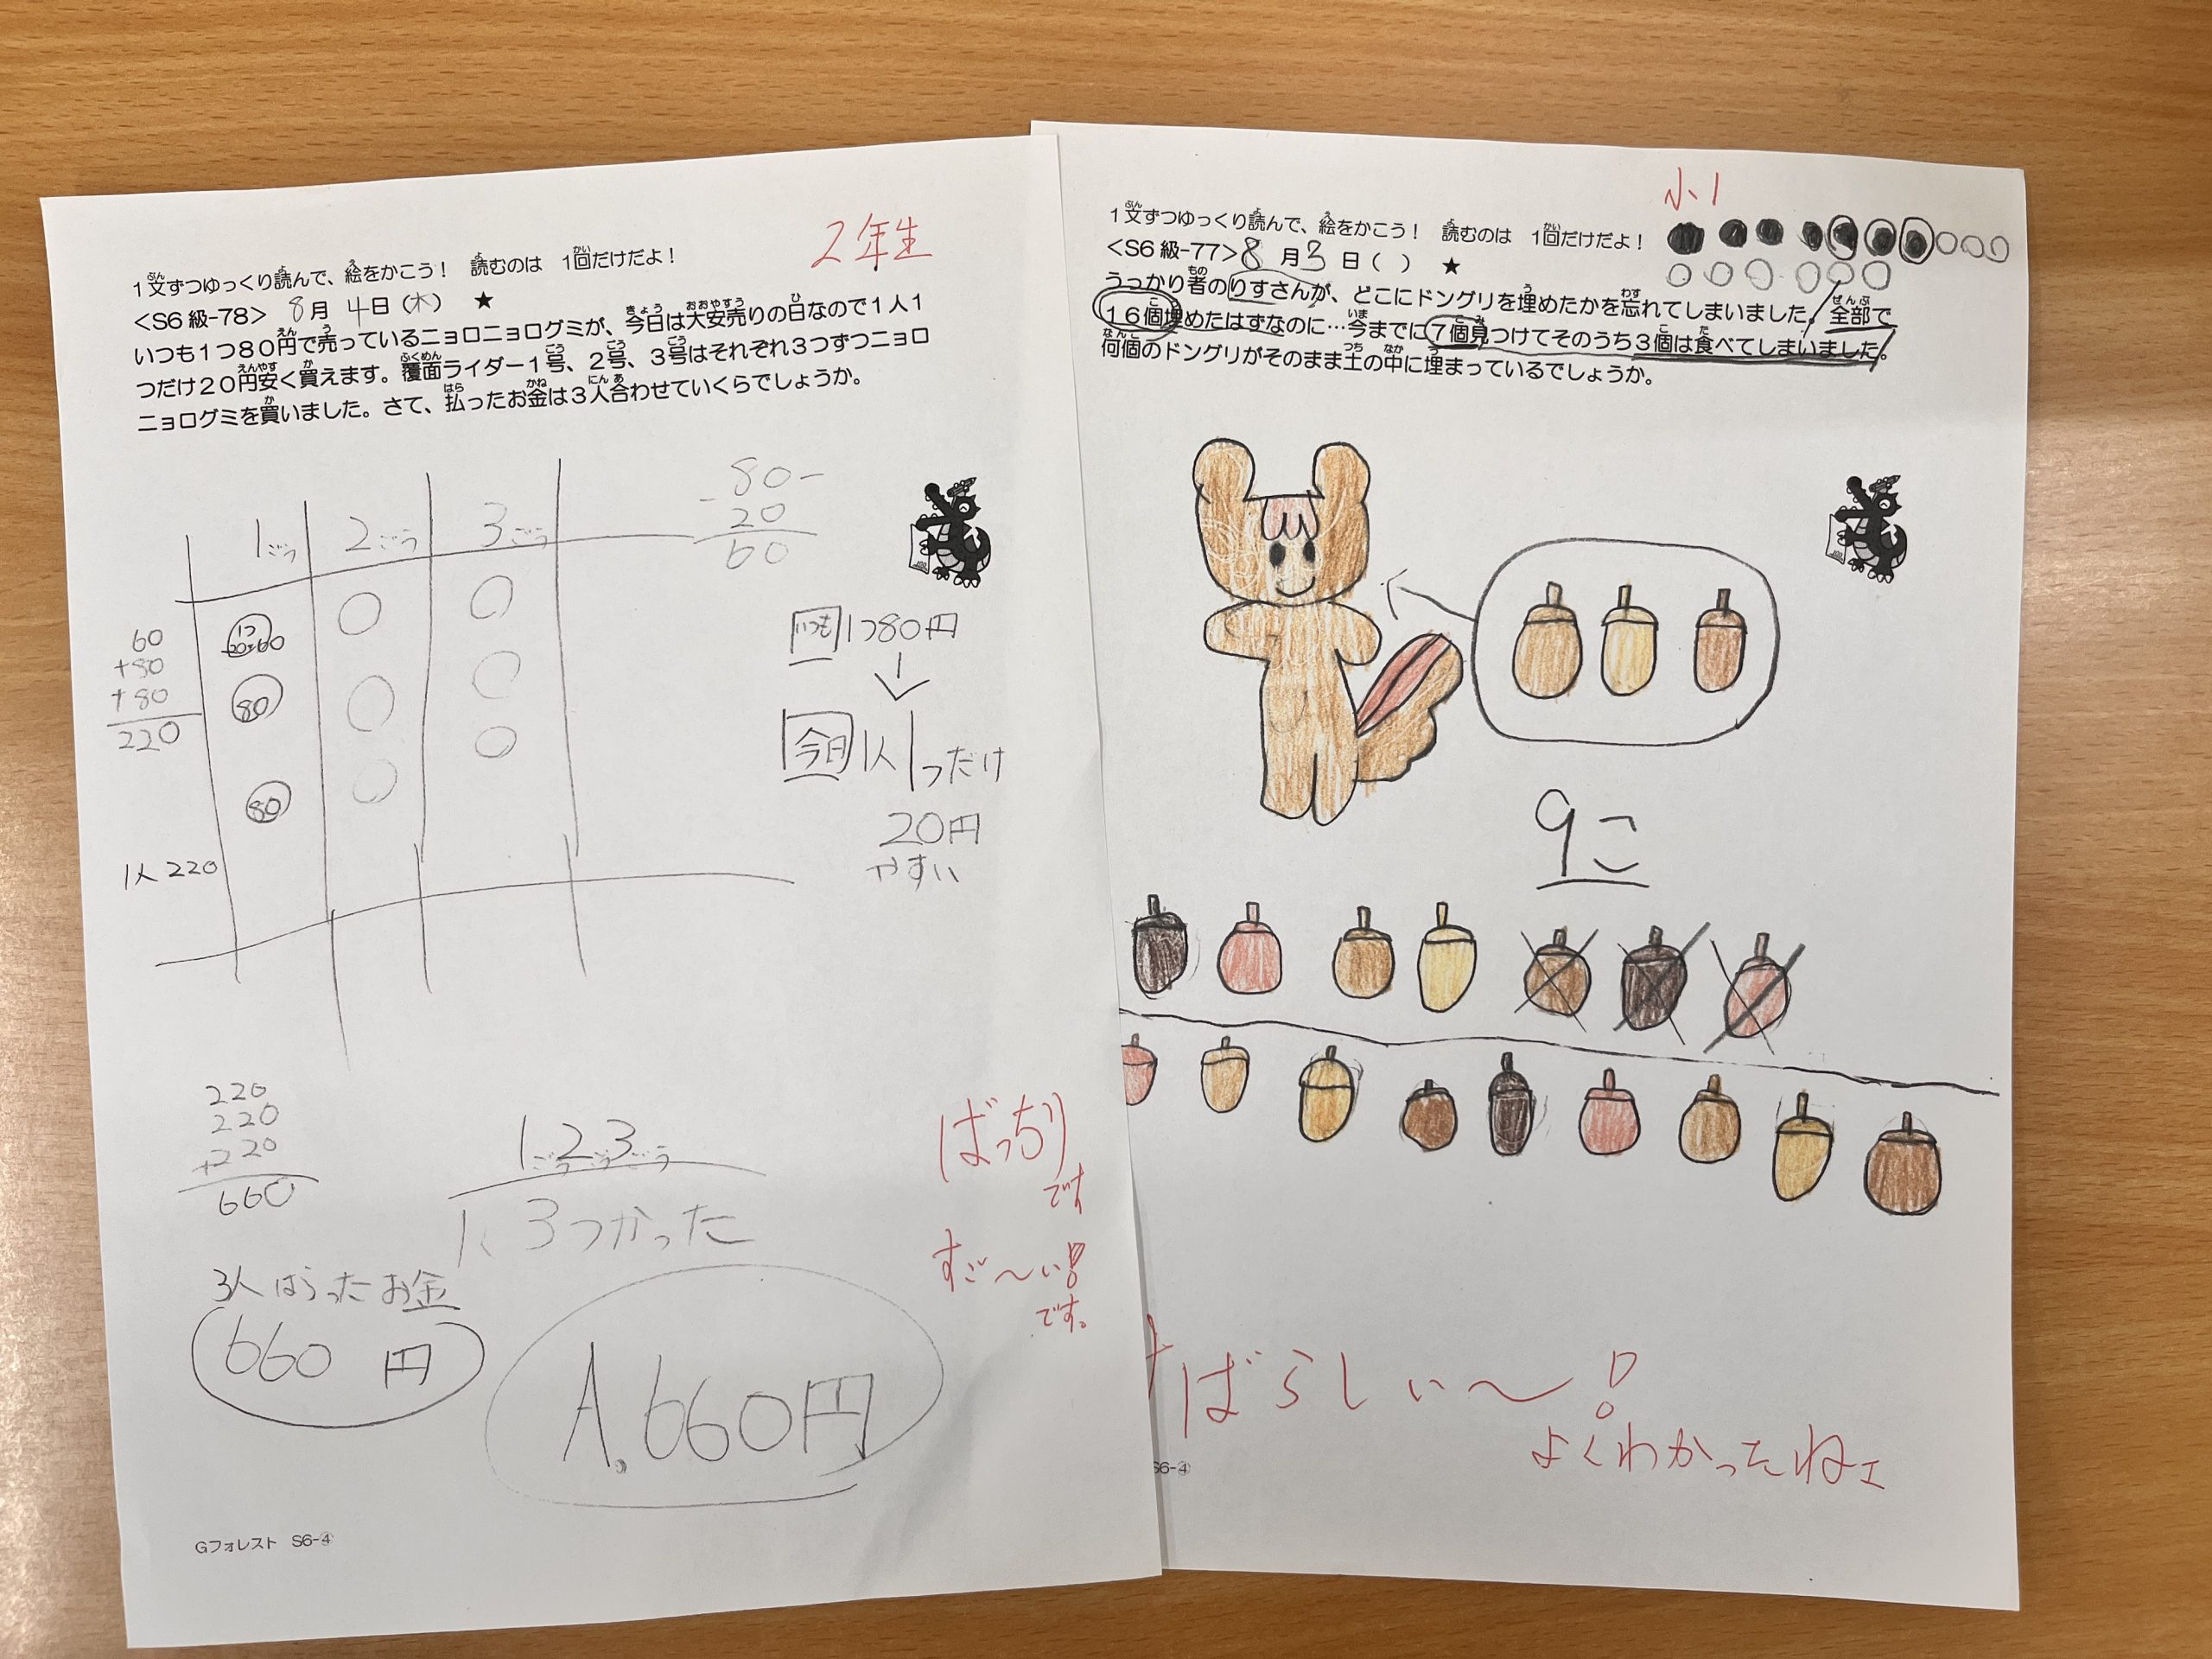 2年生
1文ずつゆっくり読んで、絵をかこう! 読むのは 1回だけだよ!
<S6級-78> 8月 4日(木) ★
いつも1つ80円で売っているニョロニョログミが、今日は大安売りの日なので1人1
つだけ20円安く買えます。覆面ライダー1号、2号、3号はそれぞれ3つずつニョロ
ニョログミを買いました。さて、払ったお金は3人合わせていくらでしょうか。
1ごう 2ごう 3ごう
80-
-20
60
60
+80
+80
220
80
80
1人220
いつも 1つ80円
今日 1人1つだけ
20円
やすい
220
220
+220
660
1ごう2ごう3ごう
1人3つかった
3人はらったお金
660円
A.660円
ばっちり
です
すご〜い!
です。
Gフォレスト S6-④
小1
1文ずつゆっくり読んで、絵をかこう! 読むのは 1回だけだよ!
<S6級-77> 8月3日( ) ★
うっかり者のりすさんが、どこにドングリを埋めたかを忘れてしまいました。全部で
16個埋めたはずなのに…今までに7個見つけてそのうち3個は食べてしまいました。
何個のドングリがそのまま土の中に埋まっているでしょうか。
9こ
すばらしい〜!
よくわかったねェ
S6-④